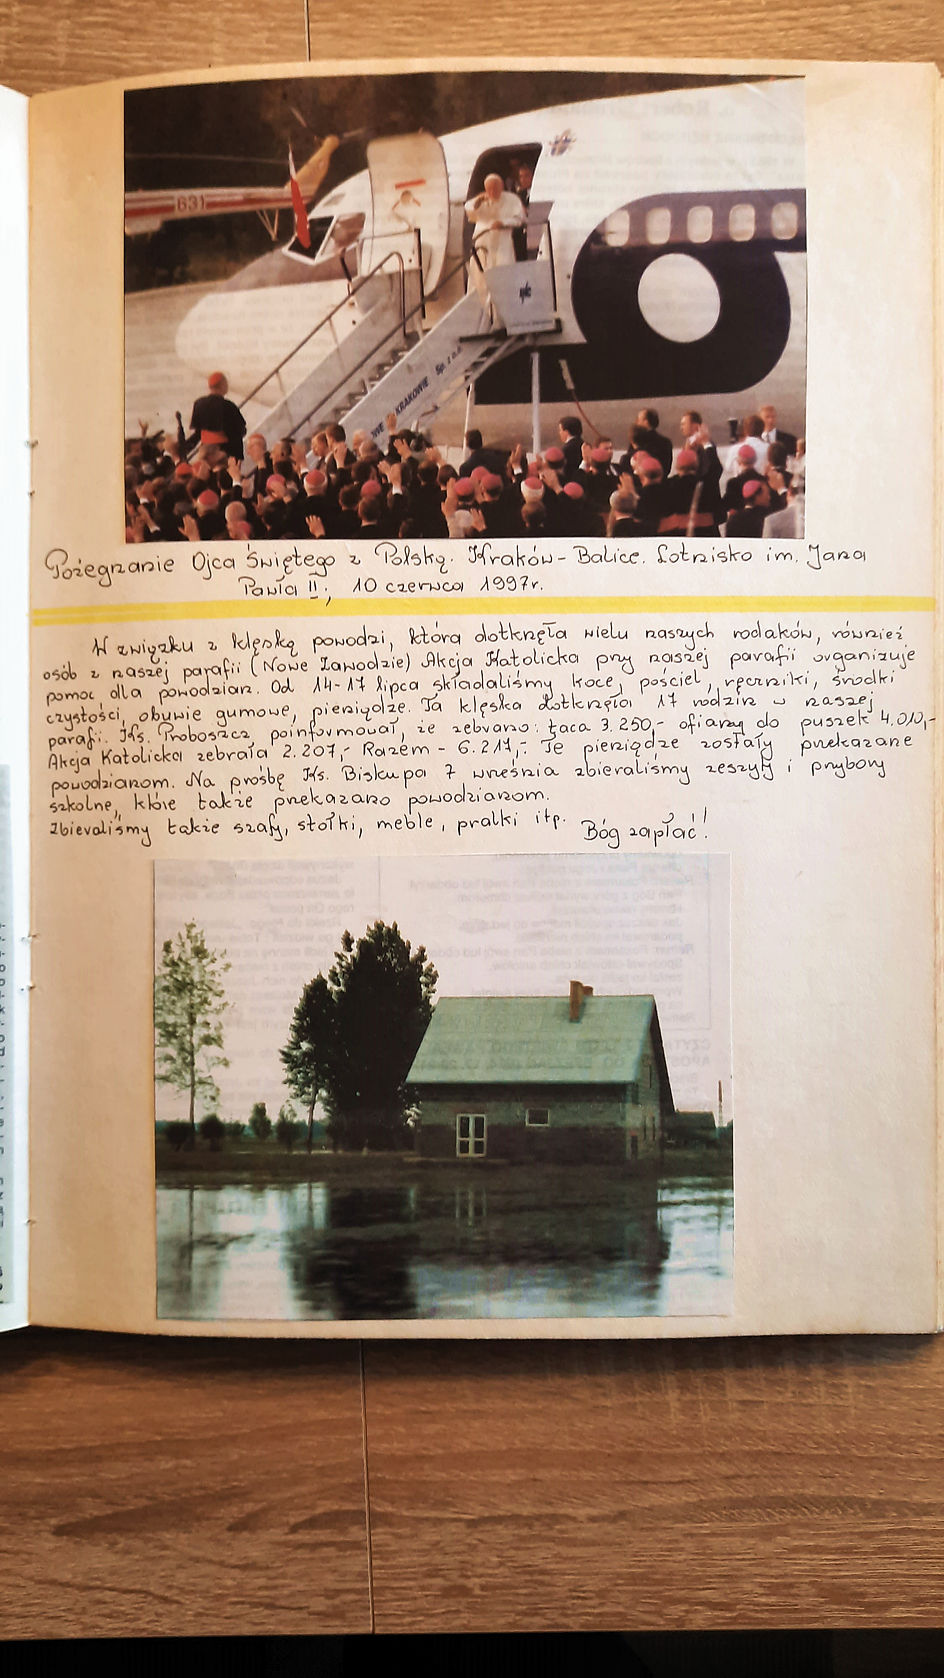 631
KRAKOWIE Sp. z o.o.
Pożegnanie Ojca Świętego z Polską. Kraków-Balice. Lotnisko im. Jana
Pawła II; 10 czerwca 1997r.
W związku z klęską powodzi, którą dotknęła wielu naszych rodaków, również
osób z naszej parafii (Nowe Zawodzie) Akcja Katolicka przy naszej parafii organizuje
pomoc dla powodzian. Od 14-17 lipca składaliśmy koce, pościel, ręczniki, środki
czystości, obuwie gumowe, pieniądze. Ta klęska dotknęła 17 rodzin w naszej
parafi. Ks. Proboszcz poinformował, że zebrano: taca 3.250,- ofiary do puszek 4.010,-
Akcja Katolicka zebrała 2.207,- Razem - 6.217,- Te pieniądze zostały przekazane
powodzianom. Na prośbę Ks. Biskupa 7 września zbieraliśmy zeszyty i przybory
szkolne, które także przekazano powodzianom.
Zbieraliśmy także szafy, stołki, meble, pralki itp. Bóg zapłać!